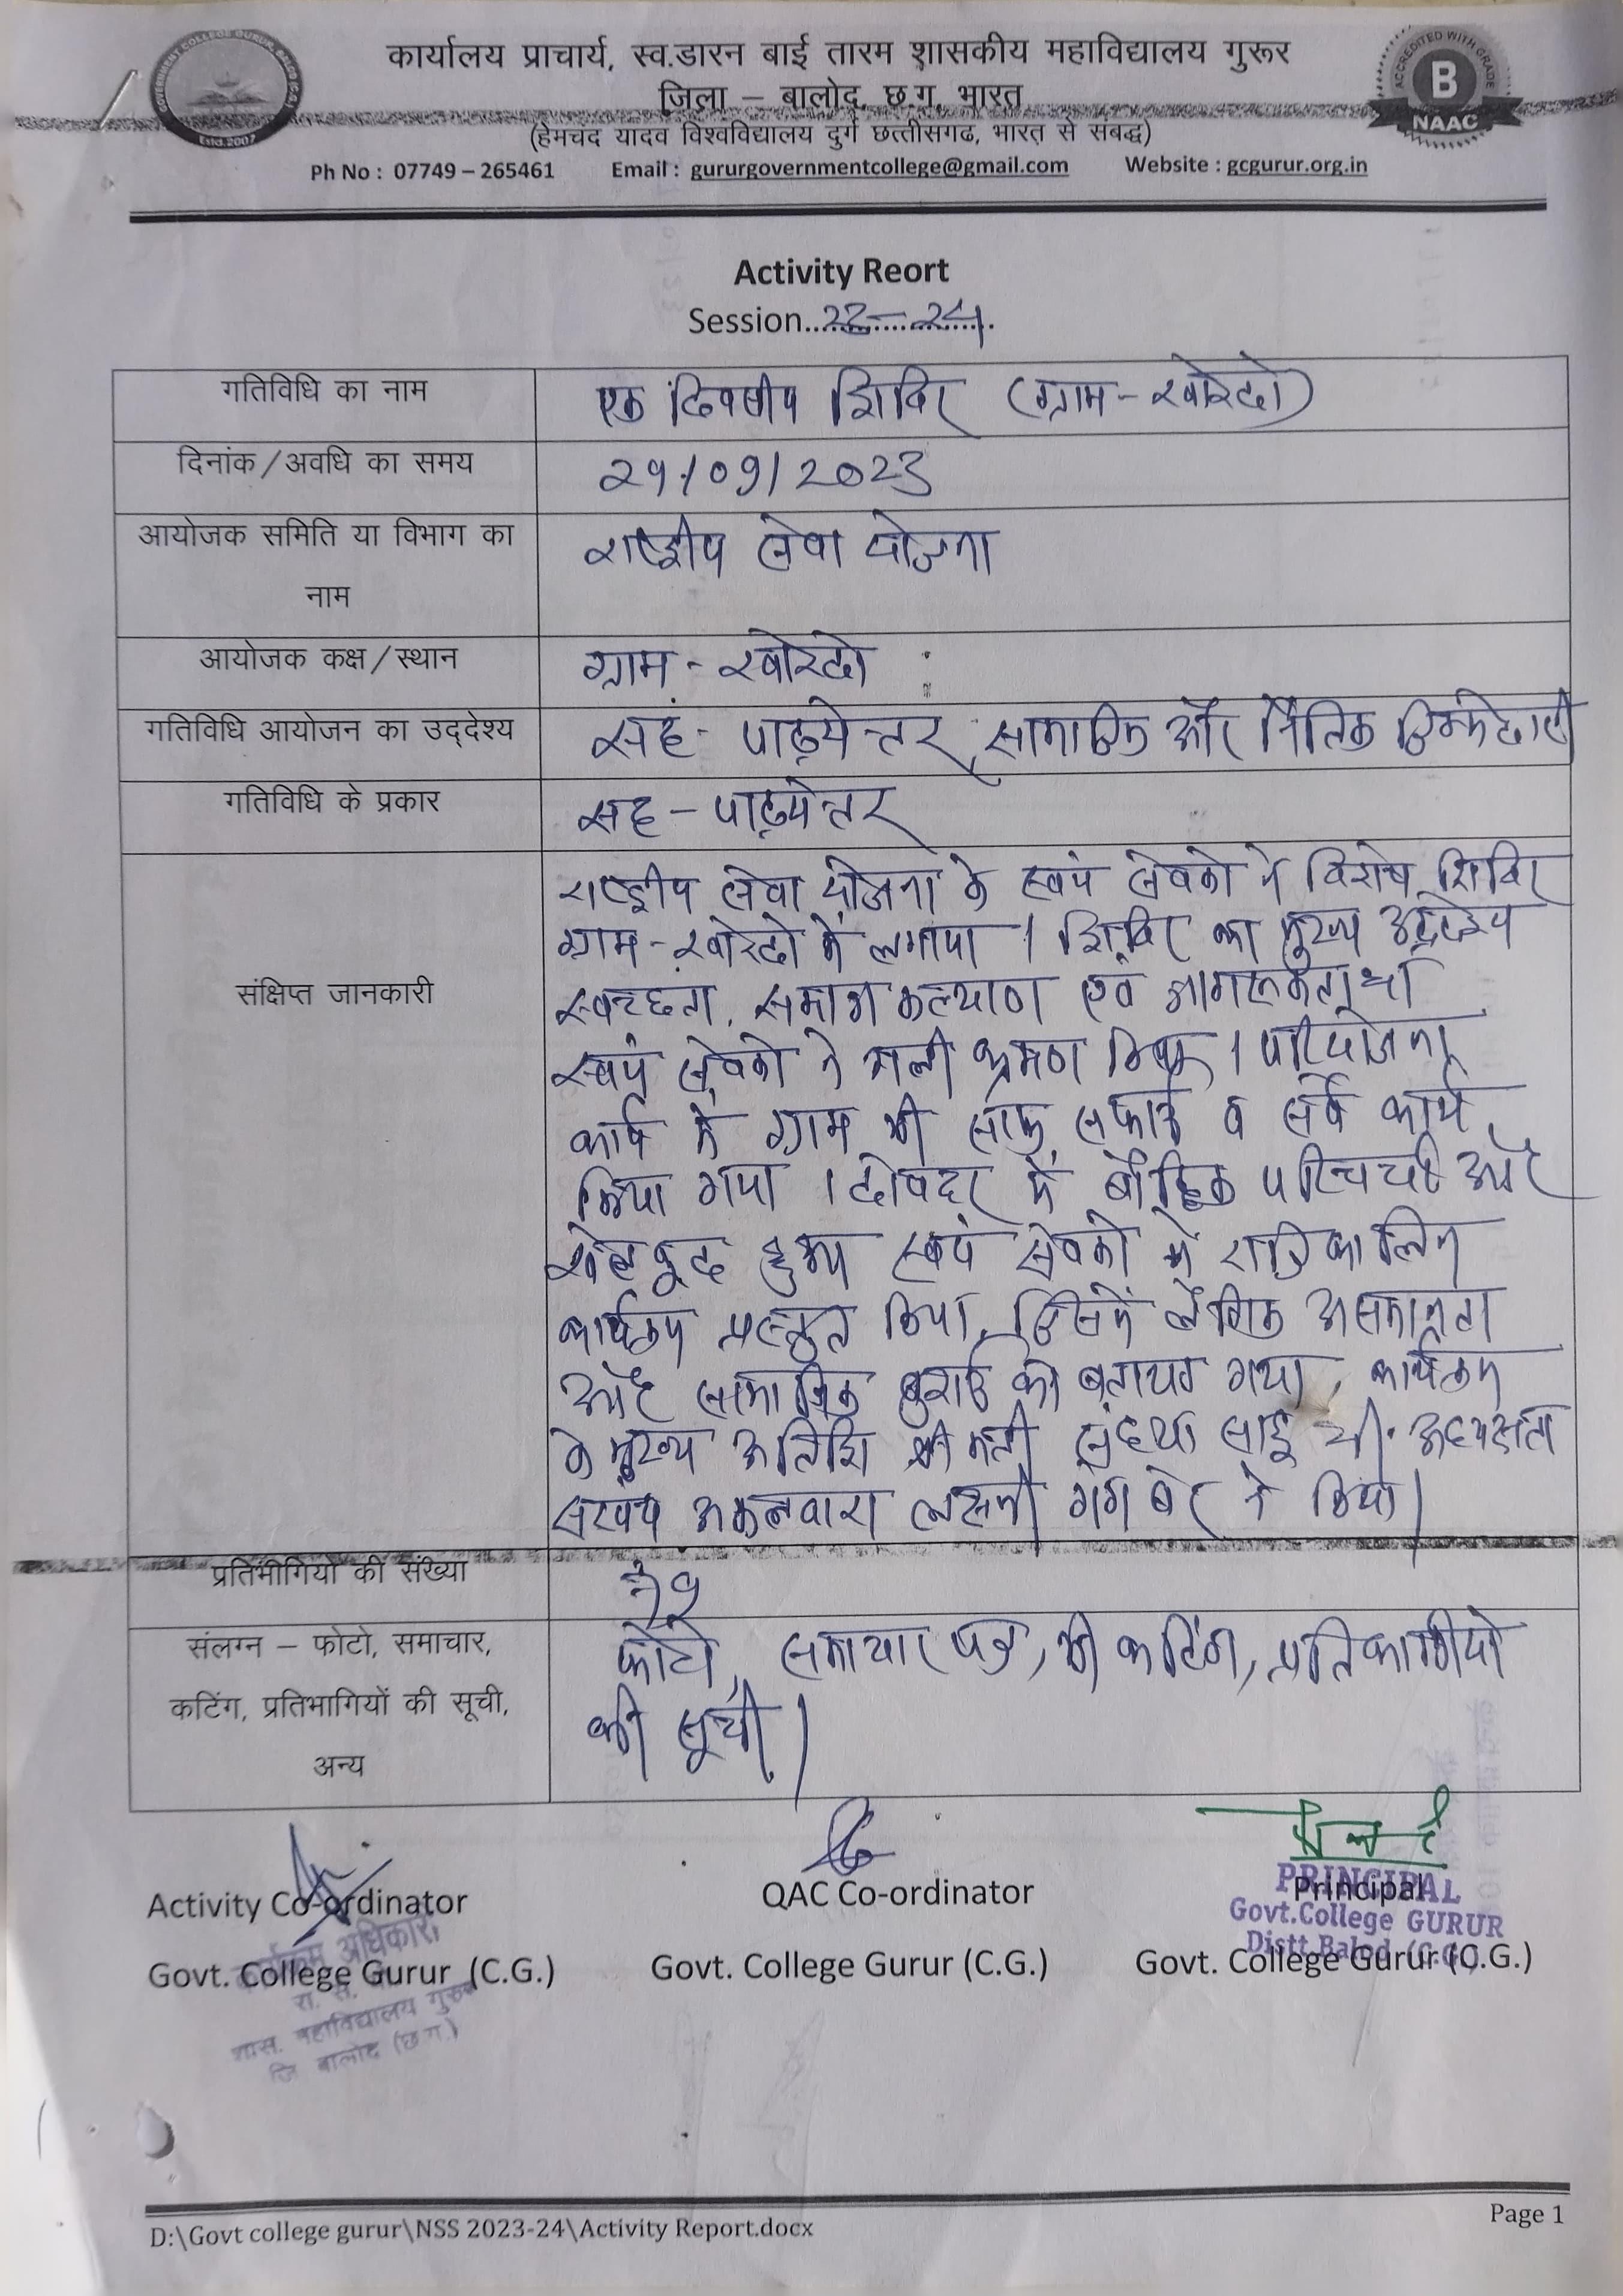 कार्यालय प्राचार्य, स्व.डारन बाई तारम शासकीय महाविद्यालय गुरूर
जिला – बालोद, छ.ग. भारत
(हेमचंद यादव विश्वविद्यालय दुर्ग छत्तीसगढ, भारत से संबद्ध)
Ph No : 07749 – 265461 Email : gururgovernmentcollege@gmail.com Website : gcgurur.org.in
GOVERNMENT COLLEGE GURUR
Estd.2007
ACCREDITED WITH GRADE
B
NAAC
Activity Reort
Session..23-24.
गतिविधि का नाम एक दिवसीय शिविर (ग्राम-खोरदो)
दिनांक/अवधि का समय 29/09/2023
आयोजक समिति या विभाग का राष्ट्रीय सेवा योजना
नाम
आयोजक कक्ष/स्थान ग्राम-खोरदो
गतिविधि आयोजन का उद्देश्य सह-पाठ्येत्तर, सामाजिक और नैतिक जिम्मेदारी
गतिविधि के प्रकार सह-पाठ्येत्तर
राष्ट्रीय सेवा योजना के स्वयं सेवको ने विशेष शिविर
ग्राम-खोरदो में लगाया। शिविर का मुख्य उद्देश्य
संक्षिप्त जानकारी स्वच्छता, समाज कल्याण एवं जागरूकता था
स्वयं सेवको ने गली भ्रमण किया। परियोजना
कार्य में ग्राम की साफ सफाई व सर्वे कार्य
किया गया। दोपहर में बौद्धिक परिचर्चा और
खेलकूद हुआ स्वयं सेवको ने रात्रिकालिन
कार्यक्रम प्रस्तुत किया, जिसमें लैंगिक असमानता
और सामाजिक बुराई को बताया गया, कार्यक्रम
के मुख्य अतिथि श्रीमती संध्या साहू थी. अध्यक्षता
सरपंच अकलवारा लक्ष्मी गंगबेर ने किया।
प्रतिभागियों की संख्या
संलग्न – फोटो, समाचार, फोटो, समाचार पत्र, की कटिंग, प्रतिभागीयो
कटिंग, प्रतिभागियों की सूची, की सूची।
अन्य
Activity Co-ordinator QAC Co-ordinator Principal
Govt. College Gurur (C.G.) Govt. College Gurur (C.G.) Govt. College Gurur (C.G.)
PRINCIPAL
Govt.College GURUR
Distt.Balod (C.G.)
कार्यक्रम अधिकारी
रा. से.
शास. महाविद्यालय गुरूर
जि बालोद (छ.ग.)
D:\Govt college gurur\NSS 2023-24\Activity Report.docx Page 1